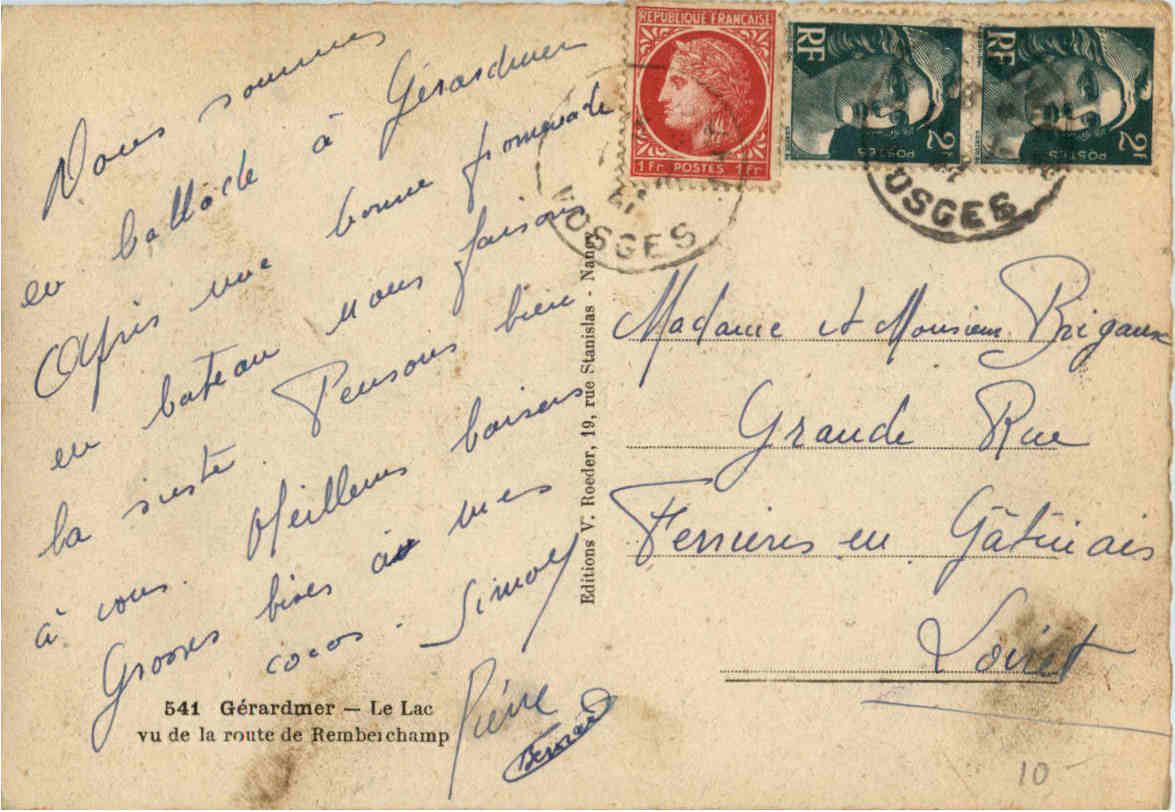 Nous sommes
en ballade à Gérardmer
Après une bonne promenade
en bateau nous faisons
la sieste. Pensons bien
à vous. Meilleurs baisers
Grosses bises à mes
cocos. Simon
Pierre
541 Gérardmer — Le Lac
vu de la route de Remberchamp
Editions V. Roeder, 19, rue Stanislas - Nancy
REPUBLIQUE FRANÇAISE
1 Fr POSTES 1 Fr
RF
POSTES
2F
RF
POSTES
2F
VOSGES
VOSGES
Madame et Monsieur Brigaux
Grande Rue
Ferrières en Gâtinais
Loiret
10